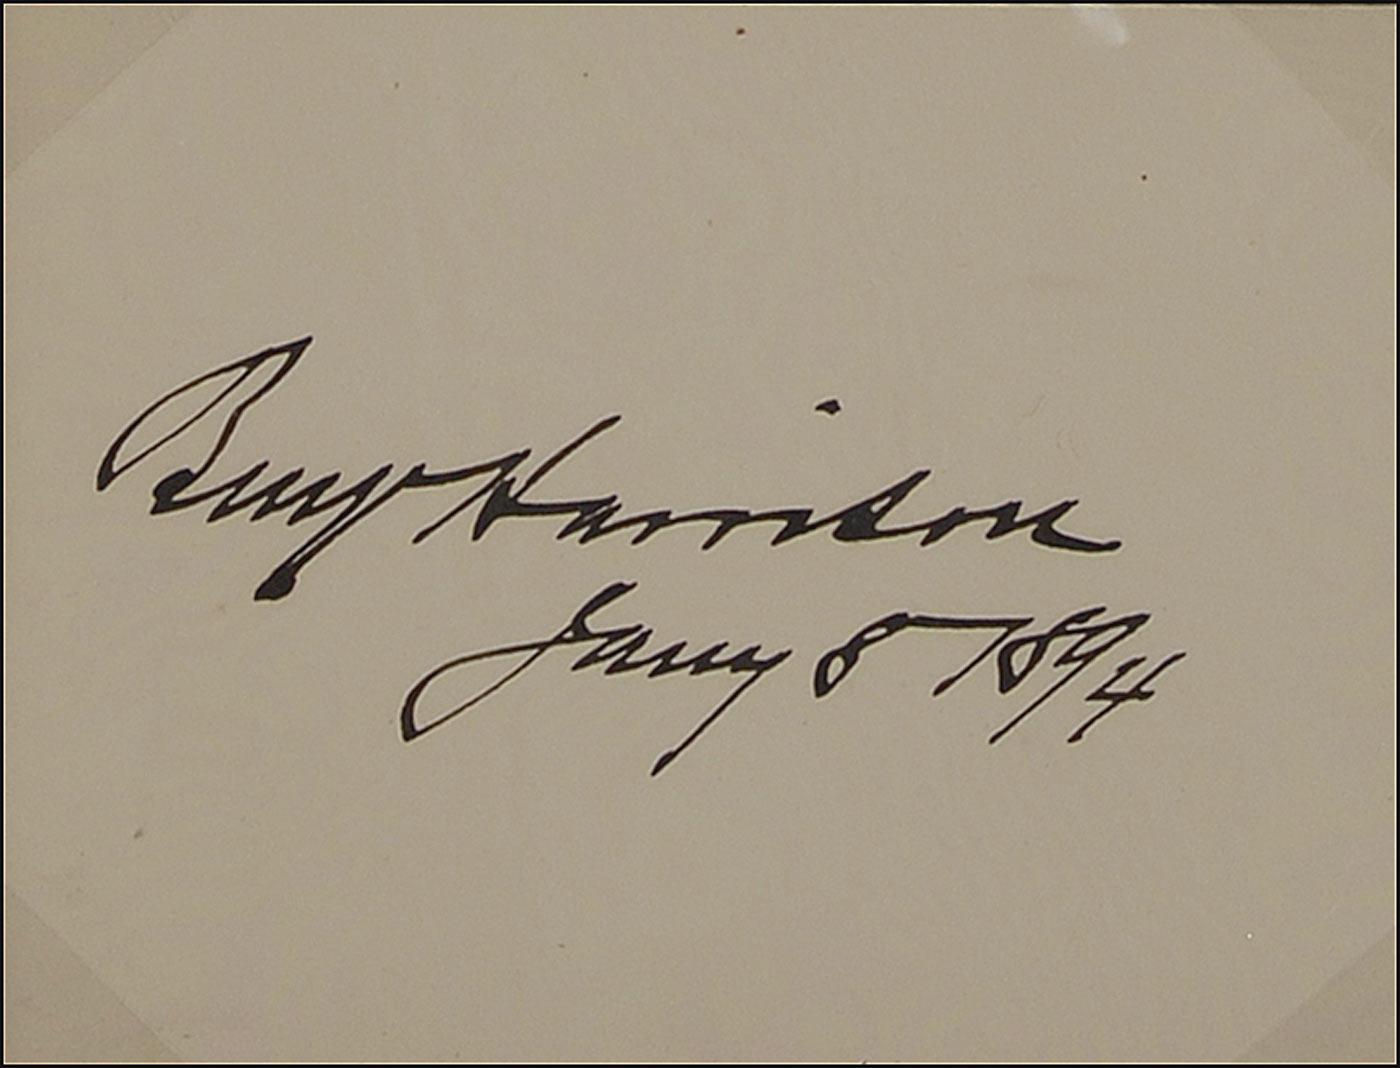 Benj Harrison
Jany 8 1894